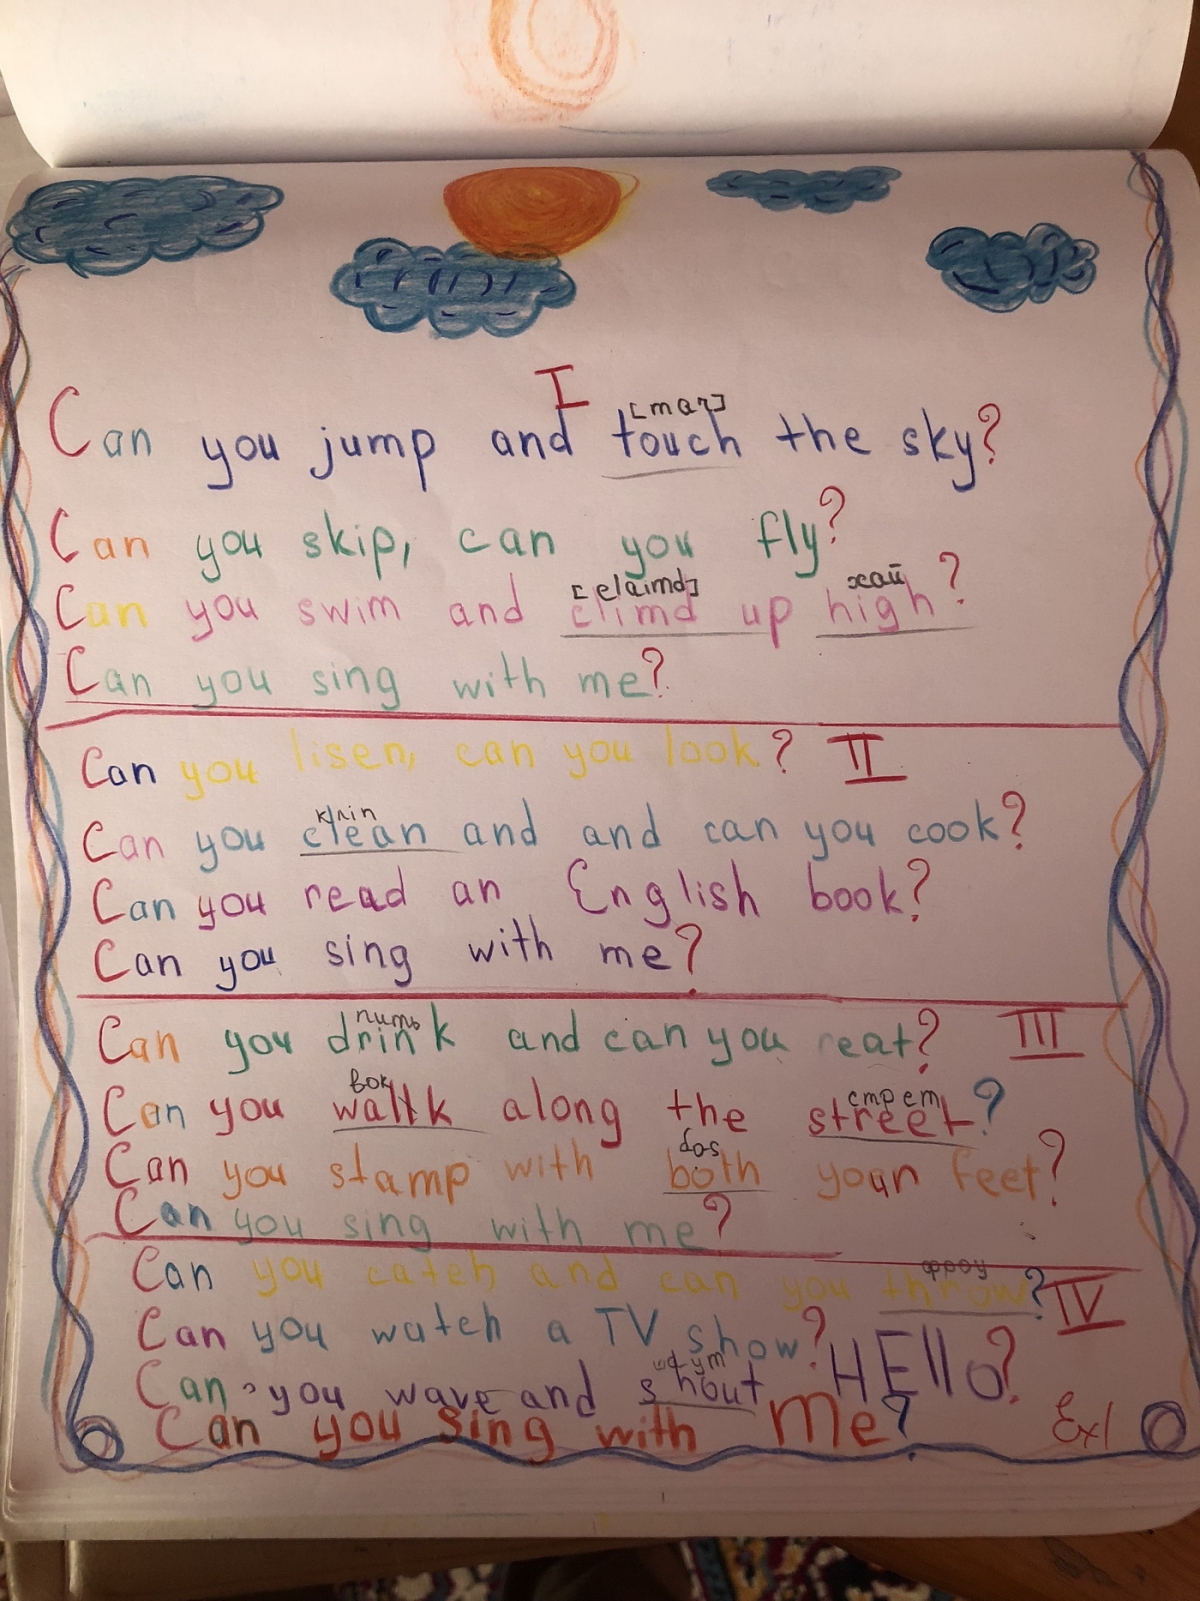 I
[тач]
Can you jump and touch the sky?
Can you skip, can you fly?
[claimd] хай
Can you swim and climd up high?
Can you sing with me?
Can you lisen, can you look? II
klin
Can you clean and and can you cook?
Can you read an English book?
Can you sing with me?
пить
Can you drink and can you reat? III
вок стрет
Can you wallk along the street?
dos
Can you stamp with both your feet?
Can you sing with me?
фроу
Can you catch and can you throw? IV
Can you watch a TV show?
Can you wave and shout HEllo?
Can you sing with me? Ex1